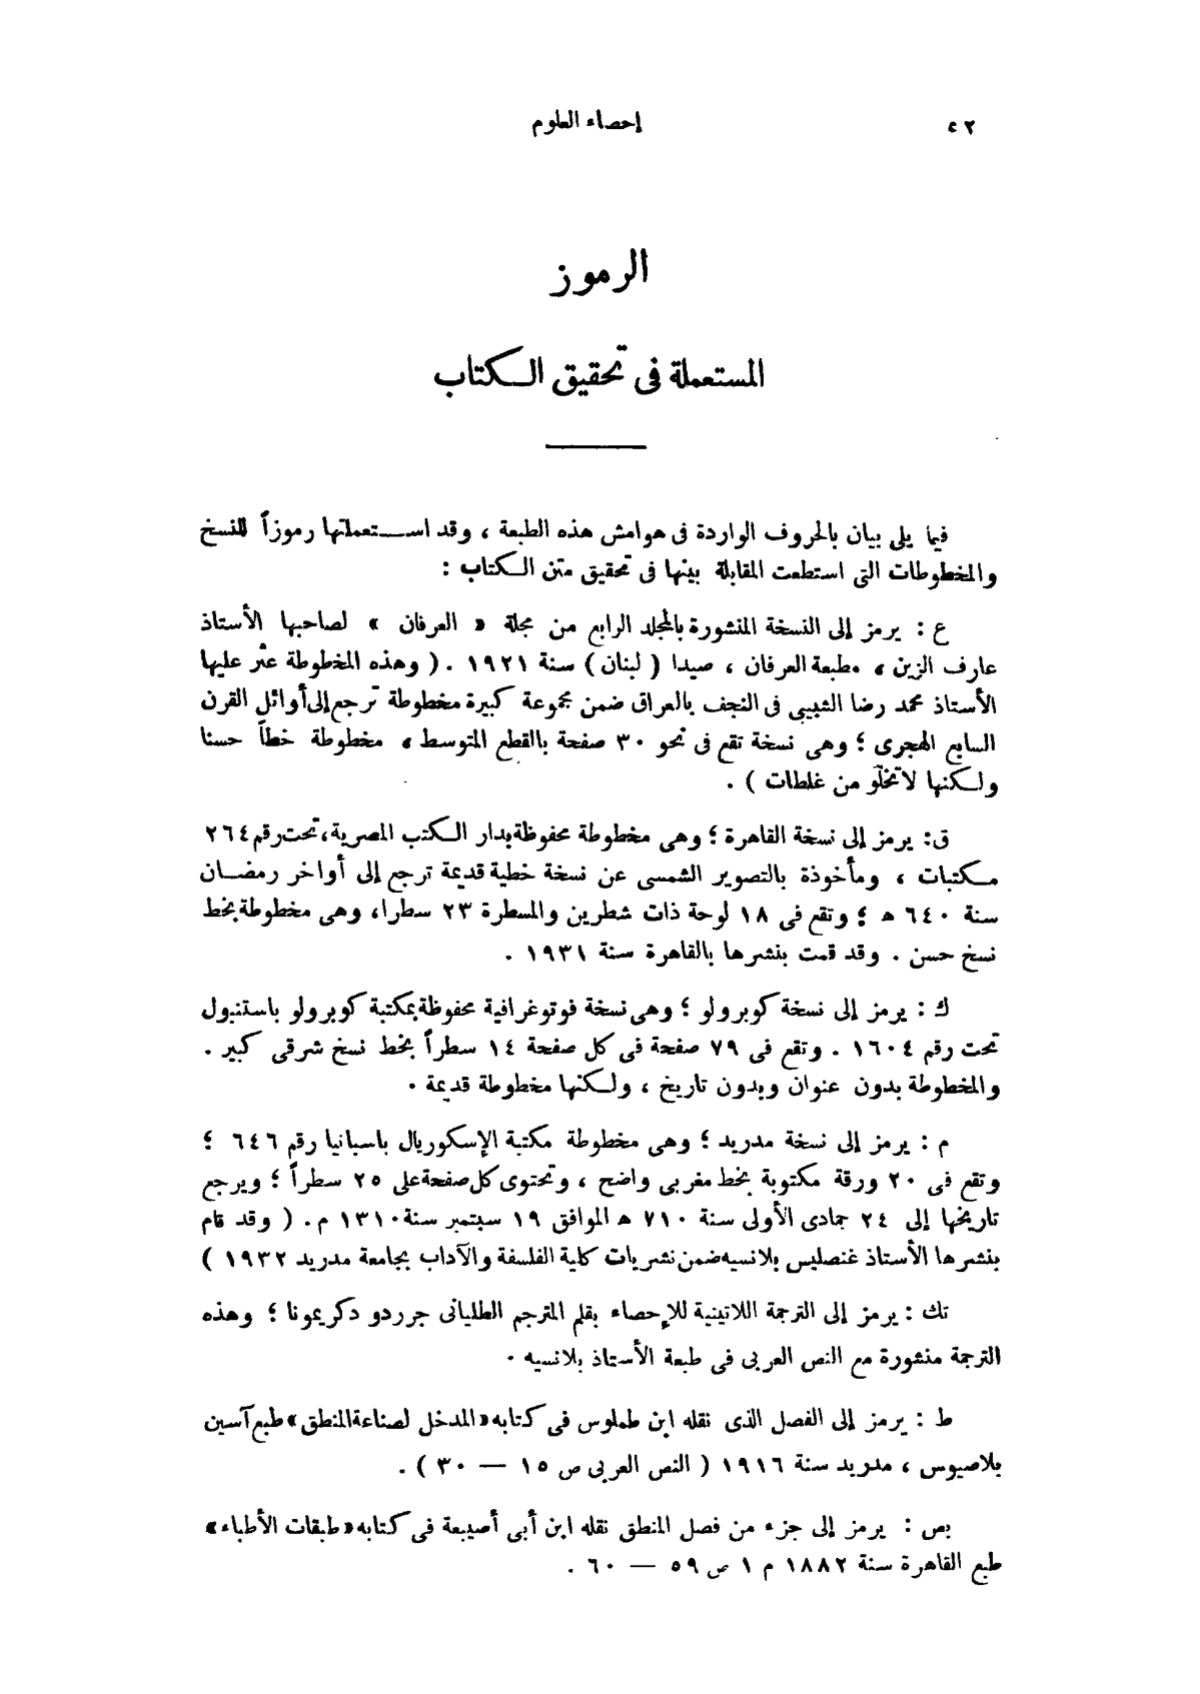 إحصاء العلوم
٤٢
الرموز
المستعملة فى تحقيق الكتاب
فيما يلى بيان بالحروف الواردة فى هوامش هذه الطبعة ، وقد استعملتها رموزاً للنسخ
والمخطوطات التى استطعت المقابلة بينها فى تحقيق متن الكتاب :
ع : يرمز إلى النسخة المنشورة بالمجلد الرابع من مجلة « العرفان » لصاحبها الأستاذ
عارف الزين ، مطبعة العرفان ، صيدا ( لبنان ) سنة ١٩٢١ . ( وهذه المخطوطة عثر عليها
الأستاذ محمد رضا الشبيبى فى النجف بالعراق ضمن مجموعة كبيرة مخطوطة ترجع إلى أوائل القرن
السابع الهجرى ؛ وهى نسخة تقع فى نحو ٣٠ صفحة بالقطع المتوسط ، مخطوطة خطاً حسنا
ولكنها لا تخلو من غلطات ) .
ق : يرمز إلى نسخة القاهرة ؛ وهى مخطوطة محفوظة بدار الكتب المصرية، تحت رقم ٢٦٤
مكتبات ، ومأخوذة بالتصوير الشمسى عن نسخة خطية قديمة ترجع إلى أواخر رمضان
سنة ٦٤٠ هـ ؛ وتقع فى ١٨ لوحة ذات شطرين والمسطرة ٢٣ سطرا، وهى مخطوطة بخط
نسخ حسن . وقد قمت بنشرها بالقاهرة سنة ١٩٣١ .
ك : يرمز إلى نسخة كوبرولو ؛ وهى نسخة فوتوغرافية محفوظة بمكتبة كوبرولو باستنبول
تحت رقم ١٦٠٤ . وتقع فى ٧٩ صفحة فى كل صفحة ١٤ سطراً بخط نسخ شرقى كبير .
والمخطوطة بدون عنوان وبدون تاريخ ، ولكنها مخطوطة قديمة .
م : يرمز إلى نسخة مدريد ؛ وهى مخطوطة مكتبة الإسكوريال باسبانيا رقم ٦٤٦ ؛
وتقع فى ٢٠ ورقة مكتوبة بخط مغربى واضح ، وتحتوى كل صفحة على ٢٥ سطراً ؛ ويرجع
تاريخها إلى ٢٤ جمادى الأولى سنة ٧١٠ هـ الموافق ١٩ سبتمبر سنة ١٣١٠ م . ( وقد قام
بنشرها الأستاذ غنصليس بلانسيه ضمن نشريات كلية الفلسفة والآداب بجامعة مدريد ١٩٣٢ )
تك : يرمز إلى الترجمة اللاتينية للإحصاء بقلم المترجم الطليانى جرردو دكريمونا ؛ وهذه
الترجمة منشورة مع النص العربى فى طبعة الأستاذ بلانسيه .
ط : يرمز إلى الفصل الذى نقله ابن طملوس فى كتابه « المدخل لصناعة المنطق » طبع آسين
بلاصيوس ، مدريد سنة ١٩١٦ ( النص العربى ص ١٥ — ٣٠ ) .
بص : يرمز إلى جزء من فصل المنطق نقله ابن أبى أصيبعة فى كتابه « طبقات الأطباء »
طبع القاهرة سنة ١٨٨٢ م ١ ص ٥٩ — ٦٠ .